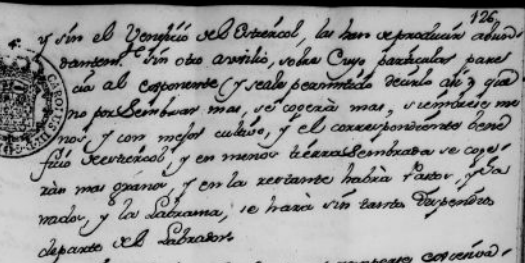 126,,
y sin el Veneficio del Estiercol, las han de producir abun-
dantem.te sin otro auxilio, sobre cuyo particular pare
cia al exponente (y seale permitido decirlo asi) que
no por Sembrar mas, se cogerá mas, siembrese me
nos, y con mejor cultivo, y el correspondiente bene
ficio de estiercol, y en menos tierra Sembrada se coge-
rán mas granos, y en la restante habrá Pastos, y Ga
nados, y la Labranza, se hará sin tanto Dispendio
de parte del Labrador
CAROLUS